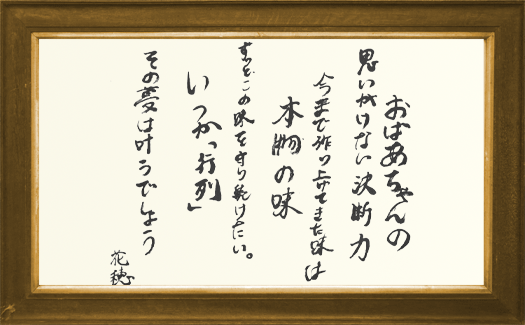 おばあちゃんの
思いがけない決断力
今まで作り上げてきた味は
本物の味
すっとこの味を守り続けたい。
いつか「行列」
その夢は叶うでしょう
花穂